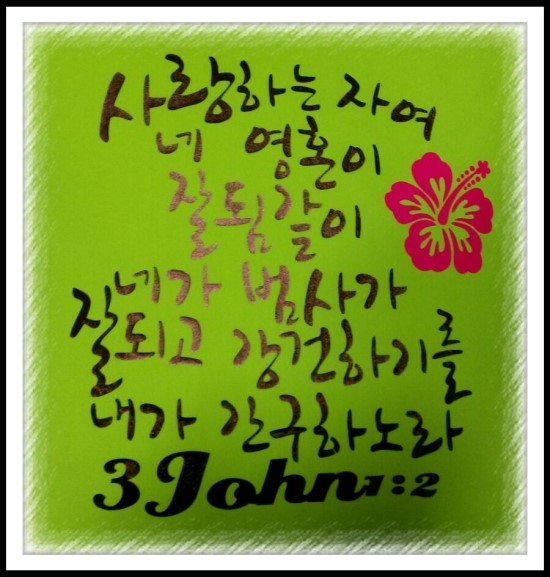 사랑하는 자여
네 영혼이
잘됨같이
네가 범사가
잘되고 강건하기를
내가 간구하노라
3 John 1:2